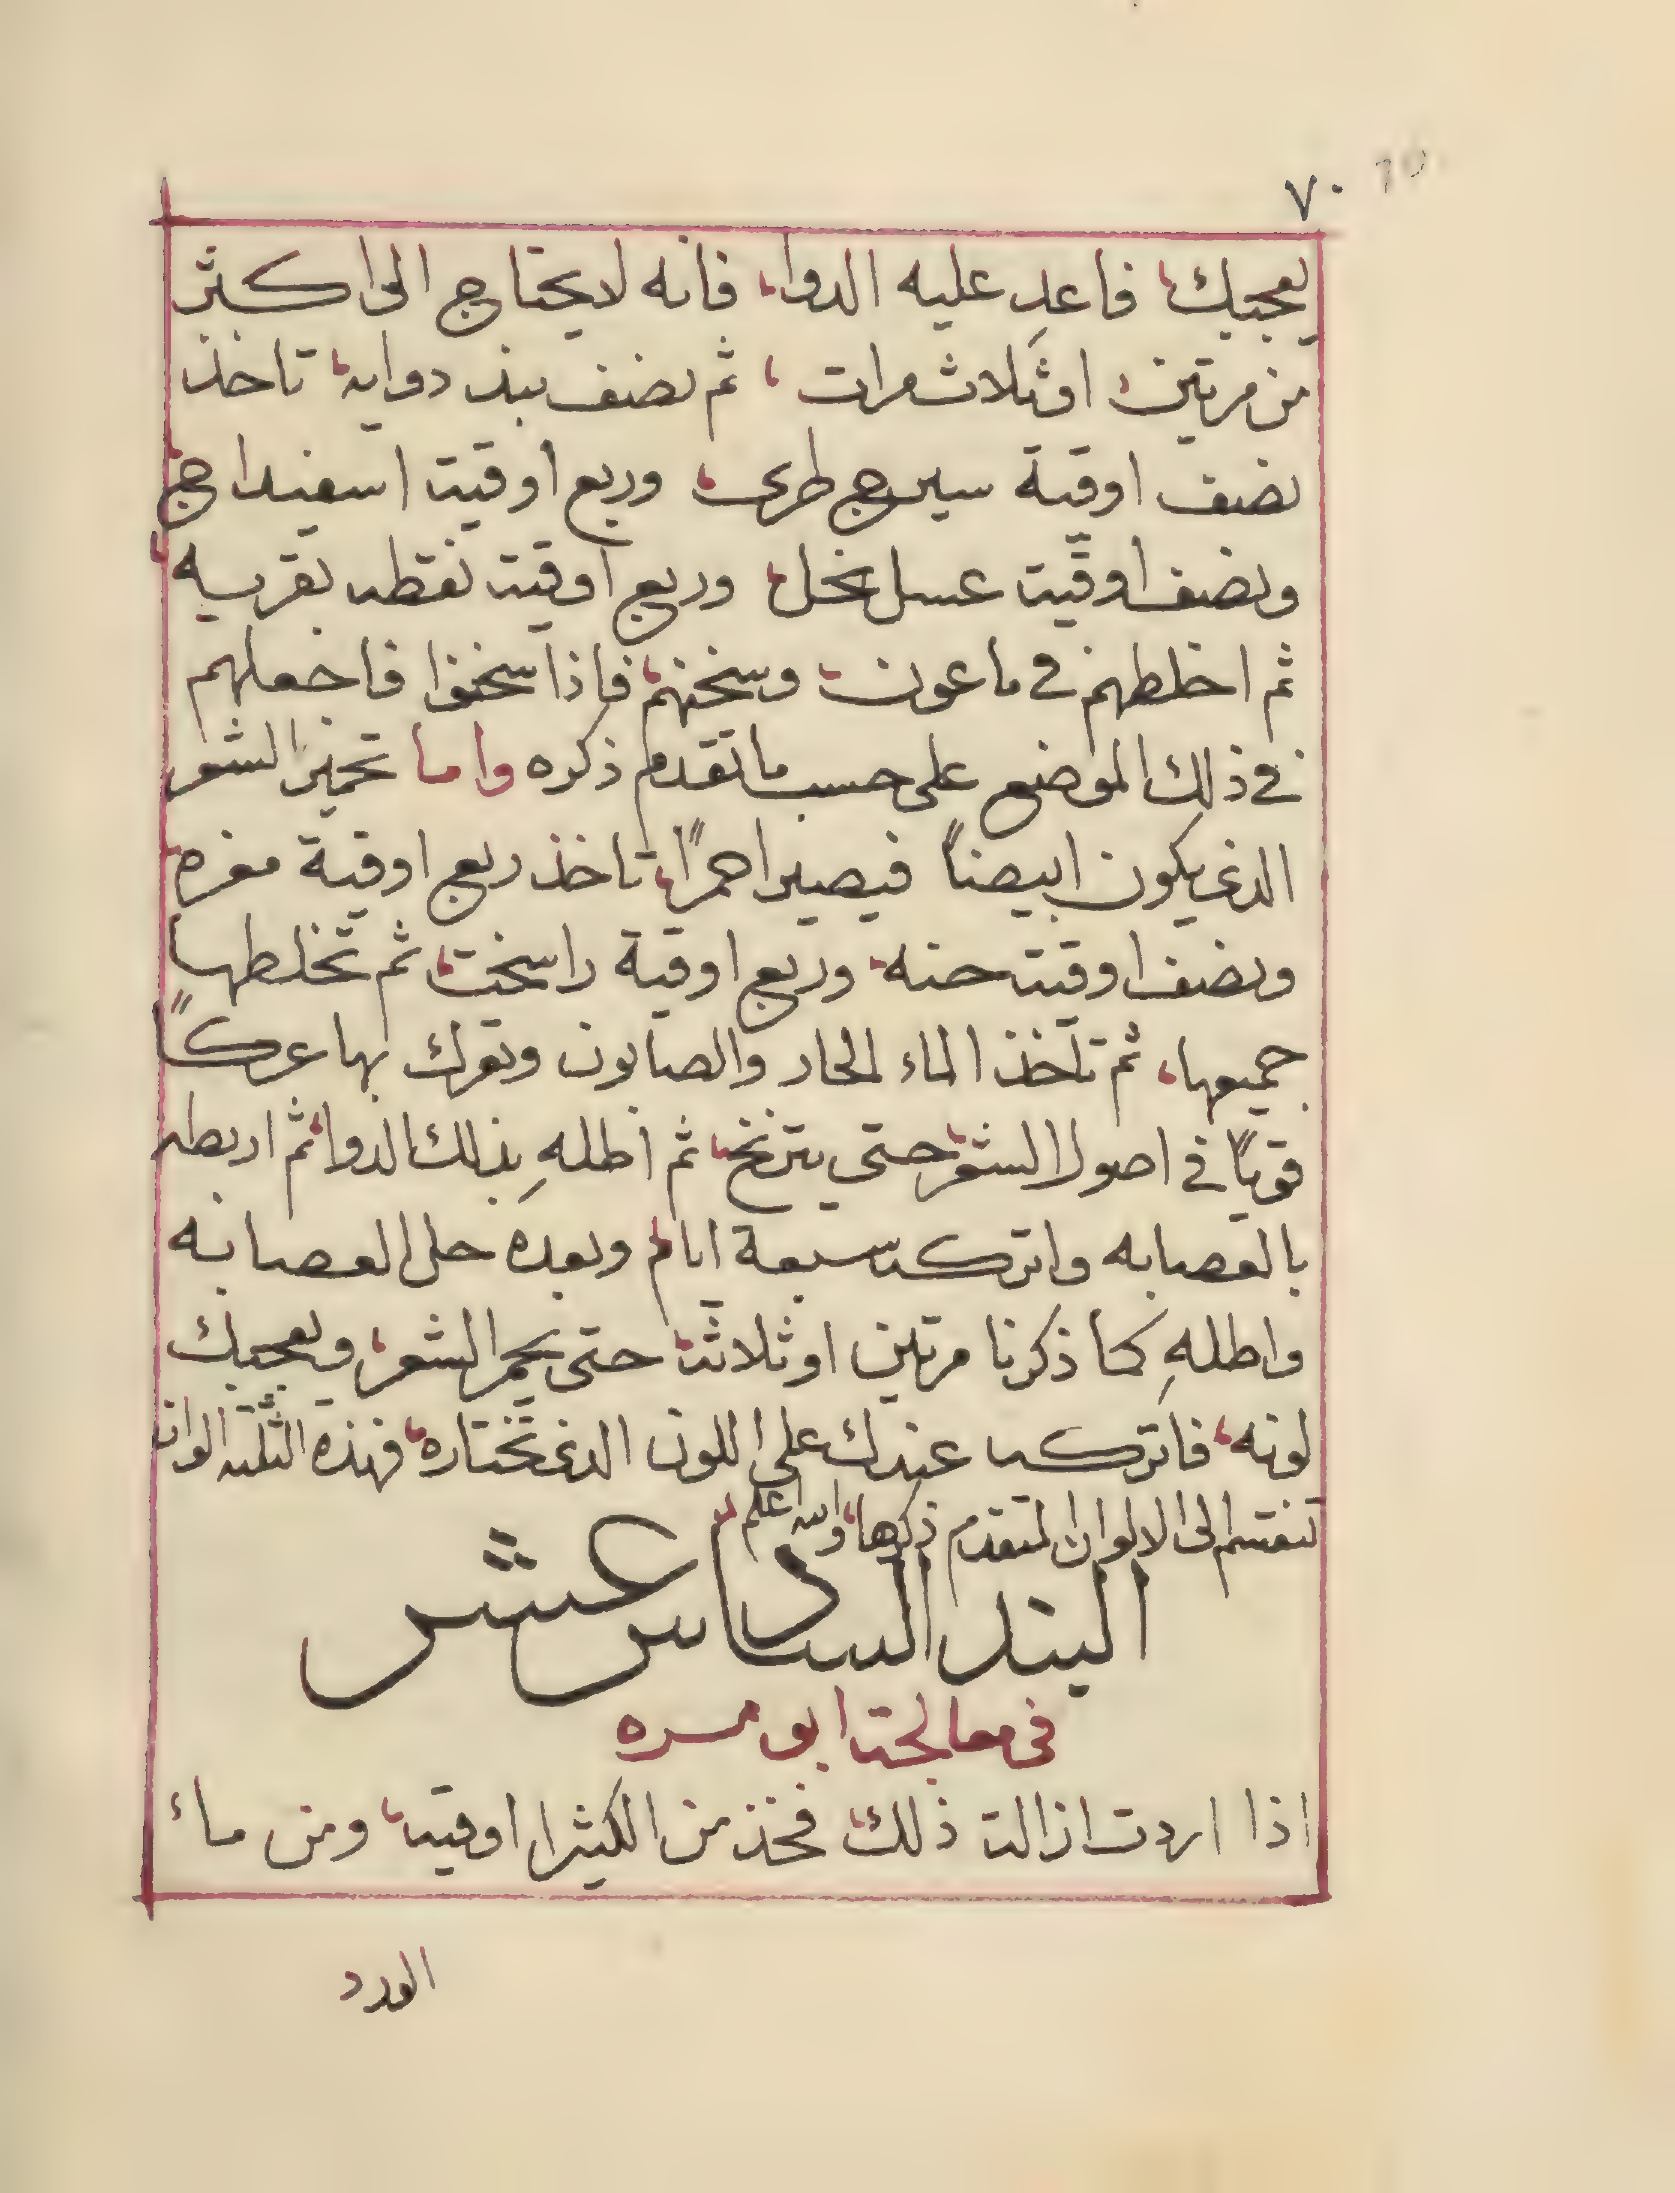 ٧٠ 70
يعجبك، فاعدِ عليه الدوا، فانه لا يحتاج الى اكثر
من مرتين، او ثلاث مرات، ثم نصف بند دوايه، تاخذ
نصف اوقية سيرج طري، وربع اوقيت اسفيداج
ونصف اوقيت عسل نحل، وربع اوقيت نفطه
ثم اخلطهم في ماعون، وسخنهم، فاذا سخنوا فاجعلهم
في ذلك الموضع على حسب ما تقدم ذكره واما تحمير الشعر
الدي يكون ابيضاً فيصير احمراً، تاخذ ربع اوقية مغره
ونصف اوقيت حنه، وربع اوقية راسخت، ثم تخلطها
جميعها، ثم تأخذ الماء الحار والصابون وتعرك بها عركاً
قوياً في اصول الشعر، حتى يترنخ، ثم اطلهِ بذلك الدوا، ثم اربطه
بالعصابه واتركه سبعة ايام، وبعده حل العصابه
واطلهِ كما ذكرنا مرتين او ثلاثة، حتى يحمر الشعر، ويعجبك
لونه، فاتركه عندك على اللون الدي تختاره، فهذه الثلثه الوان
تنقسم الى الالوان المتقدم ذكرها، والله اعلم
البند السادس عشر
في معالجت ابو مره
اذا اردت ازالت ذلك، فخذ من الكثيرا اوقيه، ومن ماء
الورد